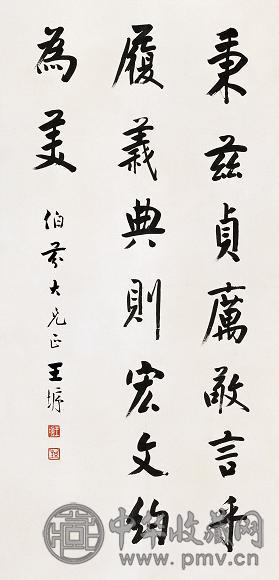 秉茲貞厲敢言乎
履義典則宏文約
為美
伯大兄正 王
中华收藏网
www.pmv.cn